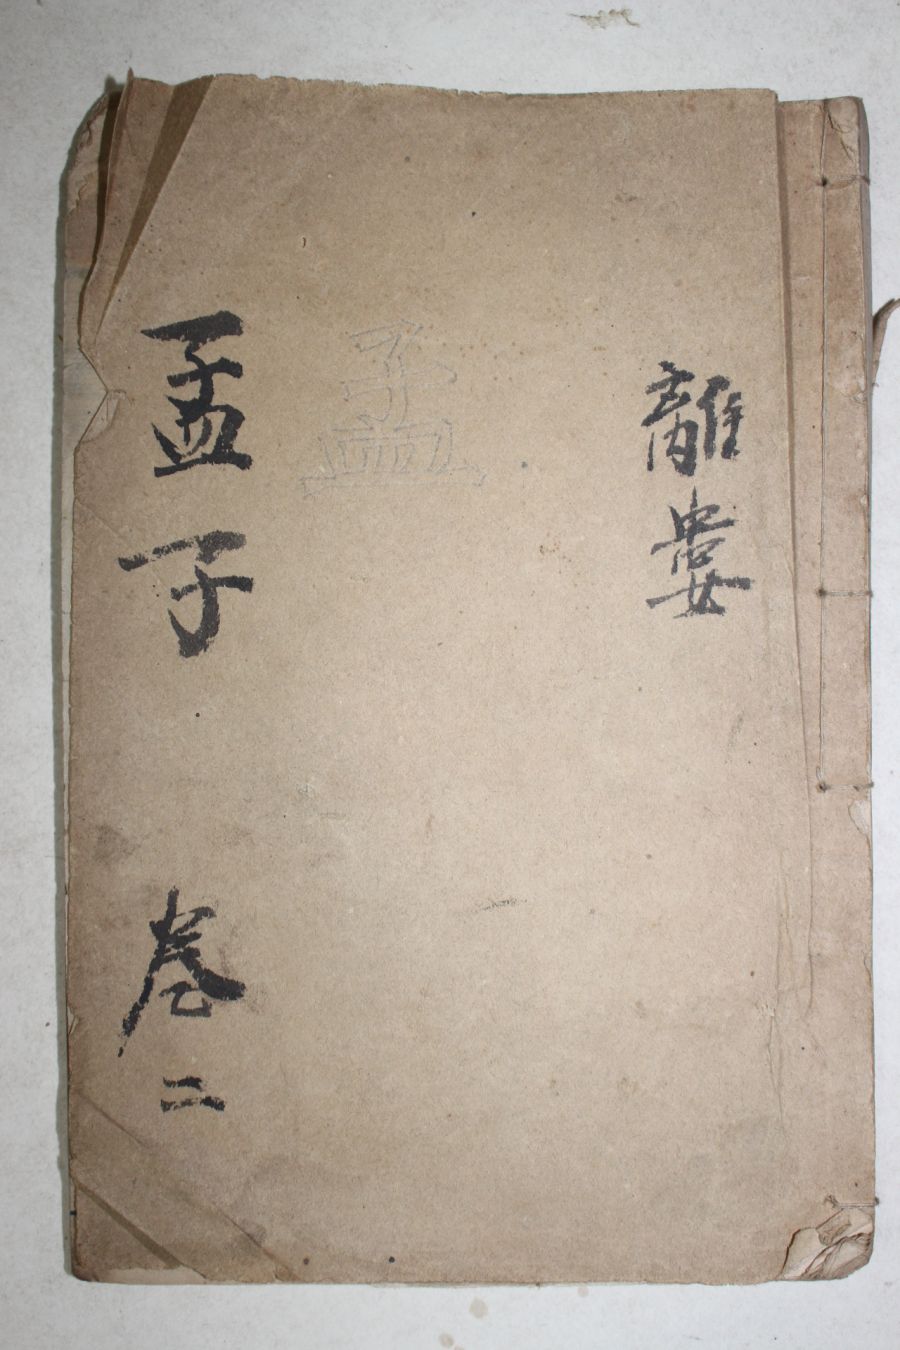 離婁
孟
孟子 卷二